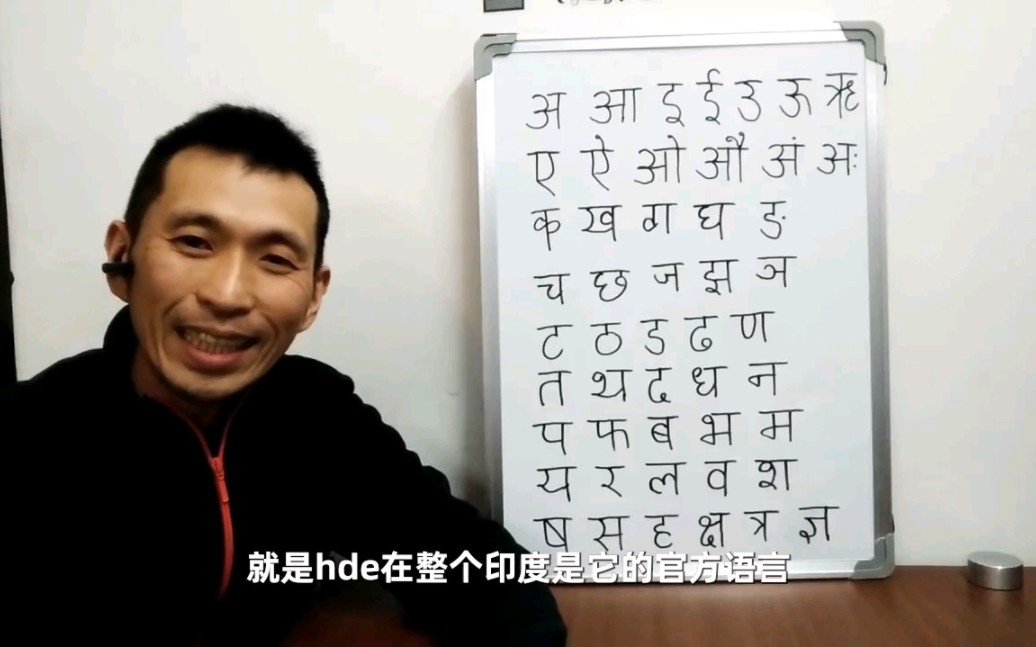 अ आ इ ई उ ऊ ऋ
ए ऐ ओ औ अं अः
क ख ग घ ङ
च छ ज झ ञ
ट ठ ड ढ ण
त थ द ध न
प फ ब भ म
य र ल व श
ष स ह क्ष त्र ज्ञ
就是hde在整个印度是它的官方语言